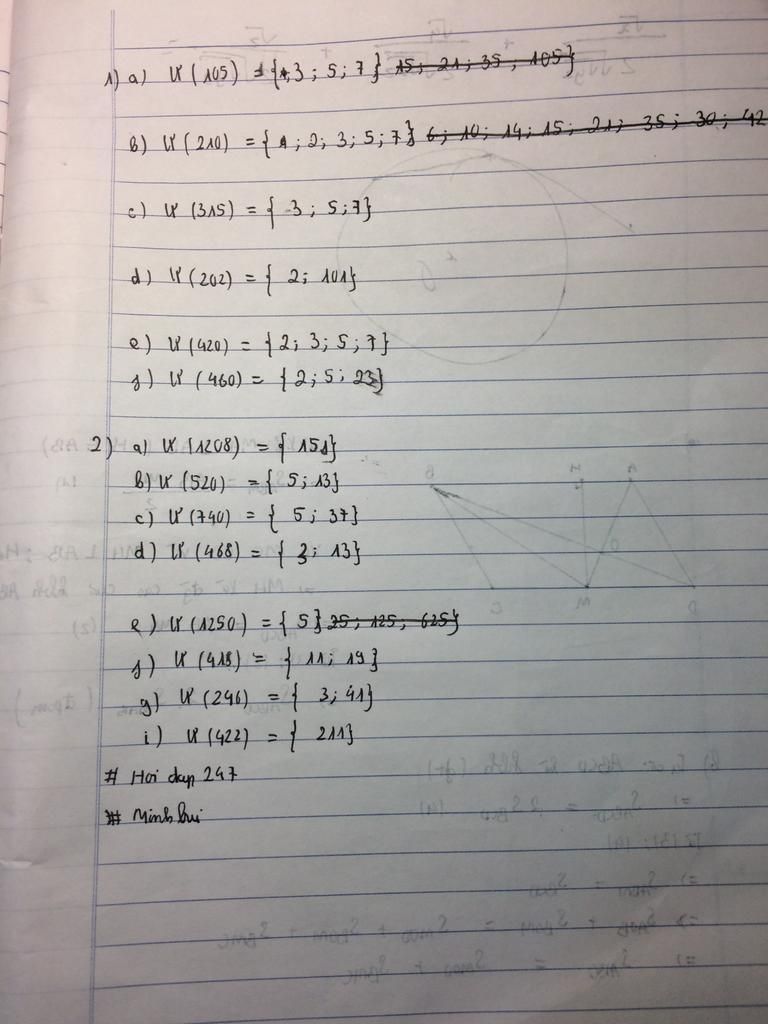 1) a) Ư(105) = {1,3; 5; 7} 15; 21; 35; 105}
b) Ư(210) = {1; 2; 3; 5; 7} 6; 10; 14; 15; 21; 35; 30; 42
c) Ư(315) = { 3; 5; 7}
d) Ư(202) = { 2; 101}
e) Ư(420) = {2; 3; 5; 7}
f) Ư(460) = {2; 5; 23}
2) a) Ư(1208) = { 151}
b) Ư(520) = { 5; 13}
c) Ư(740) = { 5; 37}
d) Ư(468) = { 3; 13}
e) Ư(1250) = { 5} 25; 125; 625}
f) Ư(418) = { 11; 19}
g) Ư(246) = { 3; 41}
i) Ư(422) = { 211}
# Hoi dap 247
#